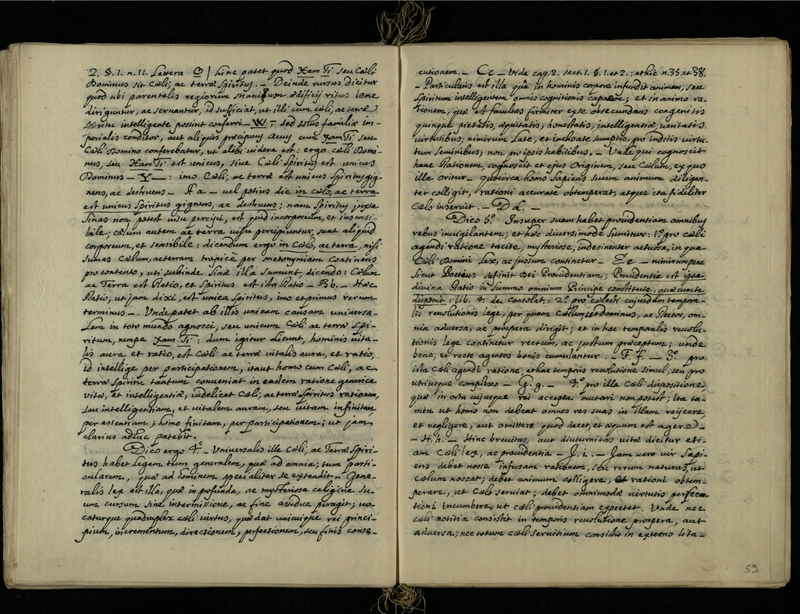 2. §. 1. n. 11. Littera | hinc patet quod Xam Ti seu Cæli
Dominus sit Cæli, ac terræ Spiritus. _ Deinde rursus dicitur
quod ubi parentales regiarum ædificij ritus bene
diriguntur, ac servantur, id sufficiat, ut illi cum cæli, ac terræ
intelligente possint conferri _ W _ sed solus familiæ im-
perialis conditor, aut aliquis præcipuus avus cum Xam Ti seu
Cæli Domino conferebatur, ut alibi videre est: ergo cæli Domi-
nus, seu Xam Ti est unicus, sive Cæli Spiritus est unicus
Dominus _ Y _: imo Cæli, ac terræ est unicus Spiritus gig-
nens, ac destruens _ _ vel potius dic in cælo, ac terra
est unicus Spiritus gignens, ac destruens; nam Spiritus juxta
Sinas non potest visu percipi, est quid incorporeum, et insensi-
bile; cælum autem ac terra visu percipiuntur, sunt aliquid
corporeum, et sensibile: dicendum ergo in Cælo, ac terra, nisi
sumas cælum, ac terram tropicè per metonymiam continens
pro contento, uti subinde Sinæ illa sumunt, dicendo: Cælum
ac Terra est Ratio, et Spiritus est ita Ratio _ Bb. _ Hæc
Ratio, ut jam dixi, est unicus Spiritus, imo et primus rerum
terminus _. Unde patet ab illis unicam causam universa-
lem in toto mundo agnosci, seu unicum Cæli ac terræ Spi-
ritum, nempe Xam Ti; dum igitur dicunt, hominis vita-
lis aura et ratio, est Cæli ac terræ vitalis aura, et ratio,
id intellige per participationem, ita ut homo cum Cæli, ac
terræ Spiritu tantum conveniat in eadem ratione generica
vitæ, et intelligentiæ, videlicet Cæli, ac terræ Spiritus rationem,
seu intelligentiam, et vitalem auram, seu vitam infinitam
per essentiam; homo finitam, per participationem; ut jam
clarius adhuc patebit.
Dico ergo 4º _ Universalis ille Cæli, ac Terræ Spiri-
tus habet legem tum generalem, quæ ad omnia; tum parti-
cularem, quæ ad hominem specialiter se extendit _ Gene-
ralis lex est illa, quæ in profunda, ac mysteriosa caligine su-
um cursum sine intermissione, ac fine assidue peragit; vo-
caturque quadruplex cæli virtus, quæ dat unicuique rei princi-
pium, incrementum, directionem, perfectionem, seu finis conse-
cutionem. _ Cc _ Vide cap. 2. sect. 1. §. 1. et 2.: et hic n. 35. et 38.
_ Particularis est illa quæ in hominis corpore infundit animam, seu
spiritum intelligentem omnis cognitionis capacem, et in animo ra-
tionem, quæ est familias firmiter ex se obtecundans congenitis
quinque pietatis, æquitatis, honestatis, intelligentiæ, veritatis
virtutibus, nimirum latè, et inchoatè sumptis, pro insitis virtu-
tum seminibus; non pro ipsis habitibus _. Unde qui cognoscit
hanc Rationem, cognoscit et ejus Originem, seu Cælum, ex quo
illa oritur. quocirca homo Sapiens suum animum diligen-
ter colligit, rationi accuratè obtemperat, atque ita fideliter
Cælo inservit. _ D d. _
Dico 5º Insuper suam habet providentiam omnibus
rebus invigilantem; et hæc diversimode sumitur: 1º pro cæli
agendi ratione tacite, mysteriose, indesinenter actuosa, in qua
Cæli Domini Lex, ac jussum continetur _ Ee _ nimirum
sicut Boetius definit Dei Providentiam; Providentia est ipsa
divina Ratio in summo omnium Principe constituta, quæ cuncta
disponit: lib. 4. de Consolat: 2º pro cælesti cujusdam tempora-
lis revolutionis lege, per quam Cælum et Dominus, ac Rector, om-
nia adversa, ac prospera dirigit; et in hac temporalis revolu-
tionis lege continetur rectum, ac justum præceptum; unde
bene, et rectè agentes bonis cumulantur _ F f _ 3º pro
ista cæli agendi ratione, et hac temporis revolutione simul, seu pro
utriusque complexo _ G. g. _ 4º pro illa Cæli dispositione,
quæ in ortu cujusque rei accepta mutari non potest; ita ta-
men ut homo non debeat omnes res suas in illam reijcere,
et negligere, aut omittere quod decet, et æquum est agere _
_ H. h. _ Hinc brevitas, aut diuturnitas vitæ dicitur eti-
am Cæli lex, ac providentia _ J. i. _ Jam vero vir Sapi-
ens debet nosse infusam rationem, seu rerum naturas, ut
Cælum noscat; debet animum colligere, et rationi obtem-
perare, ut Cælo serviat; debet omnimodæ virtutis perfec-
tioni incumbere, ut cæli providentiam expectet. Unde nec
cæli notitia consistit in temporis revolutione prospera, aut
adversa; nec totum cæli servitium consistit in externo lita-
59